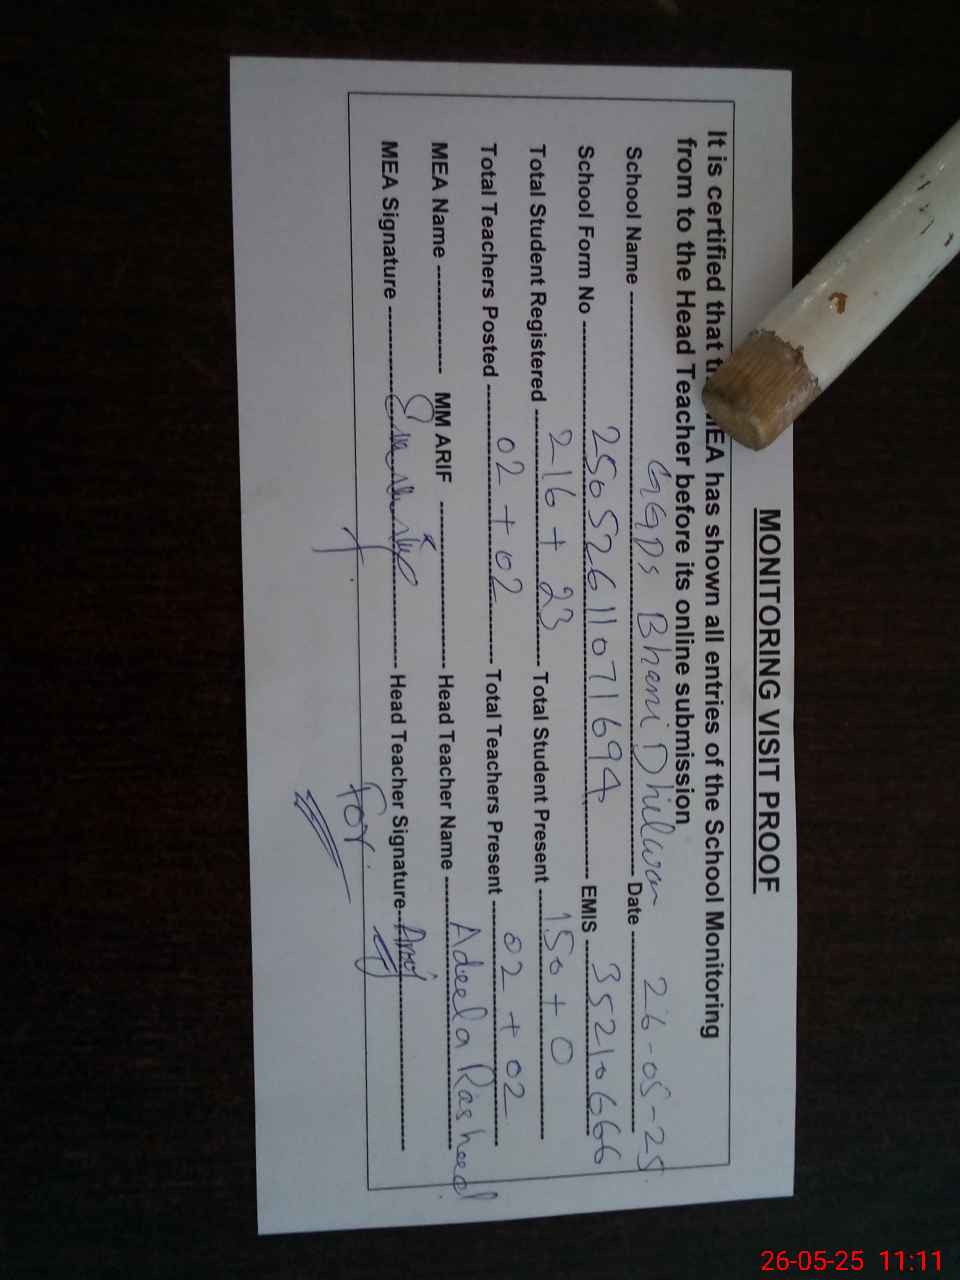 MONITORING VISIT PROOF
It is certified that MEA has shown all entries of the School Monitoring
from to the Head Teacher before its online submission
School Name GGPS Bhani Dhilwan Date 26-05-25
School Form No 25052611071694 EMIS 35210666
Total Student Registered 216 + 23 Total Student Present 150 + 0
Total Teachers Posted 02 + 02 Total Teachers Present 02 + 02
MEA Name MM ARIF Head Teacher Name Adeela Rasheed
MEA Signature Head Teacher Signature
For
26-05-25 11:11